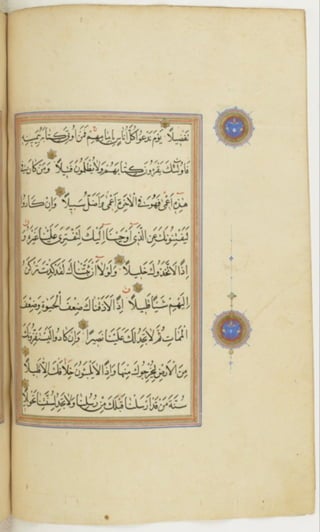 تَفْضِيلًا يَوْمَ نَدْعُوا كُلَّ أُنَاسٍ بِإِمَامِهِمْ فَمَنْ أُوتِيَ كِتَابَهُ بِيَمِينِهِ
فَأُولَئِكَ يَقْرَؤُنَ كِتَابَهُمْ وَلَا يُظْلَمُونَ فَتِيلًا وَمَنْ كَانَ فِي
هَذِهِ أَعْمَى فَهُوَ فِي الْآخِرَةِ أَعْمَى وَأَضَلُّ سَبِيلًا وَإِنْ كَادُوا
لَيَفْتِنُونَكَ عَنِ الَّذِي أَوْحَيْنَا إِلَيْكَ لِتَفْتَرِيَ عَلَيْنَا غَيْرَهُ وَ
إِذًا لَاتَّخَذُوكَ خَلِيلًا وَلَوْلَا أَنْ ثَبَّتْنَاكَ لَقَدْ كِدْتَ تَرْكَنُ
إِلَيْهِمْ شَيْئًا قَلِيلًا إِذًا لَأَذَقْنَاكَ ضِعْفَ الْحَيٰوةِ وَضِعْفَ
الْمَمَاتِ ثُمَّ لَا تَجِدُ لَكَ عَلَيْنَا نَصِيرًا وَإِنْ كَادُوا لَيَسْتَفِزُّونَكَ
مِنَ الْأَرْضِ لِيُخْرِجُوكَ مِنْهَا وَإِذًا لَا يَلْبَثُونَ خِلَافَكَ إِلَّا قَلِيلًا
سُنَّةَ مَنْ قَدْ أَرْسَلْنَا قَبْلَكَ مِنْ رُسُلِنَا وَلَا تَجِدُ لِسُنَّتِنَا تَحْوِيلًا